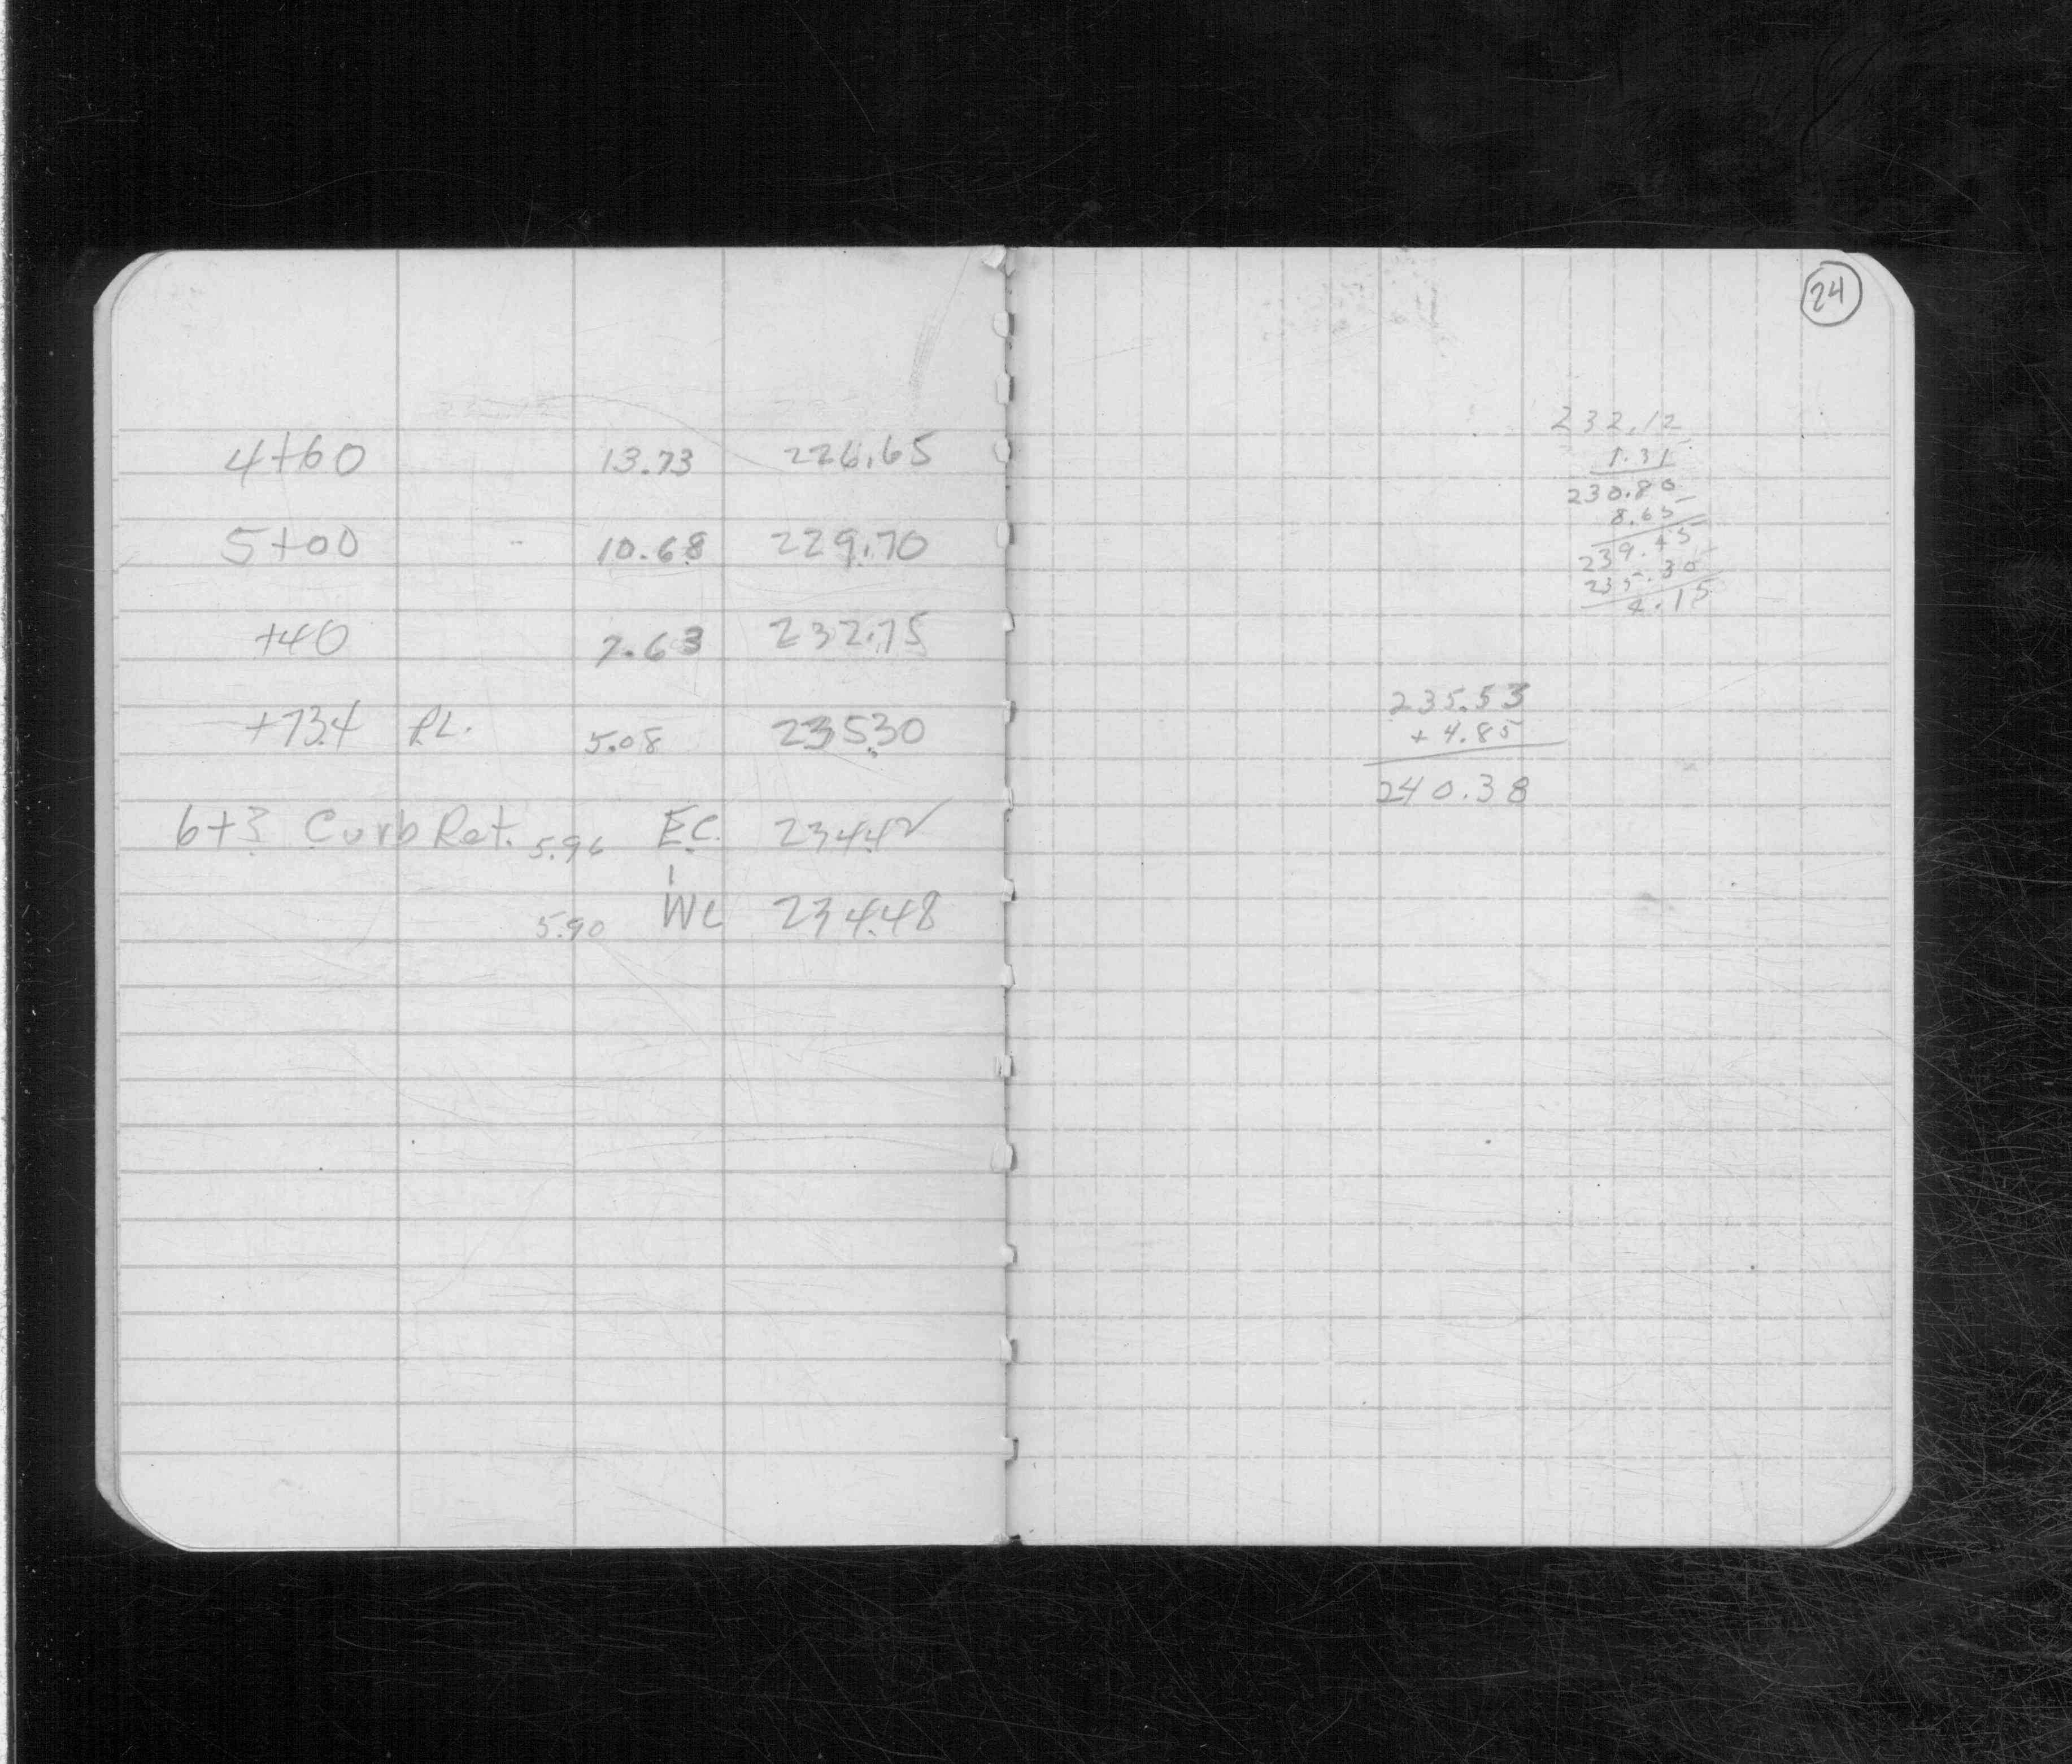 4+60 13.73 226.65
5+00 10.68 229.70
+40 7.63 232.75
+73.4 PL. 5.08 235.30
6+3 Curb Ret. 5.96 E.C. 234.42
5.90 WC 234.48
24
232.12
1.31
230.80
8.65
239.45
235.30
4.15
235.53
+ 4.85
240.38